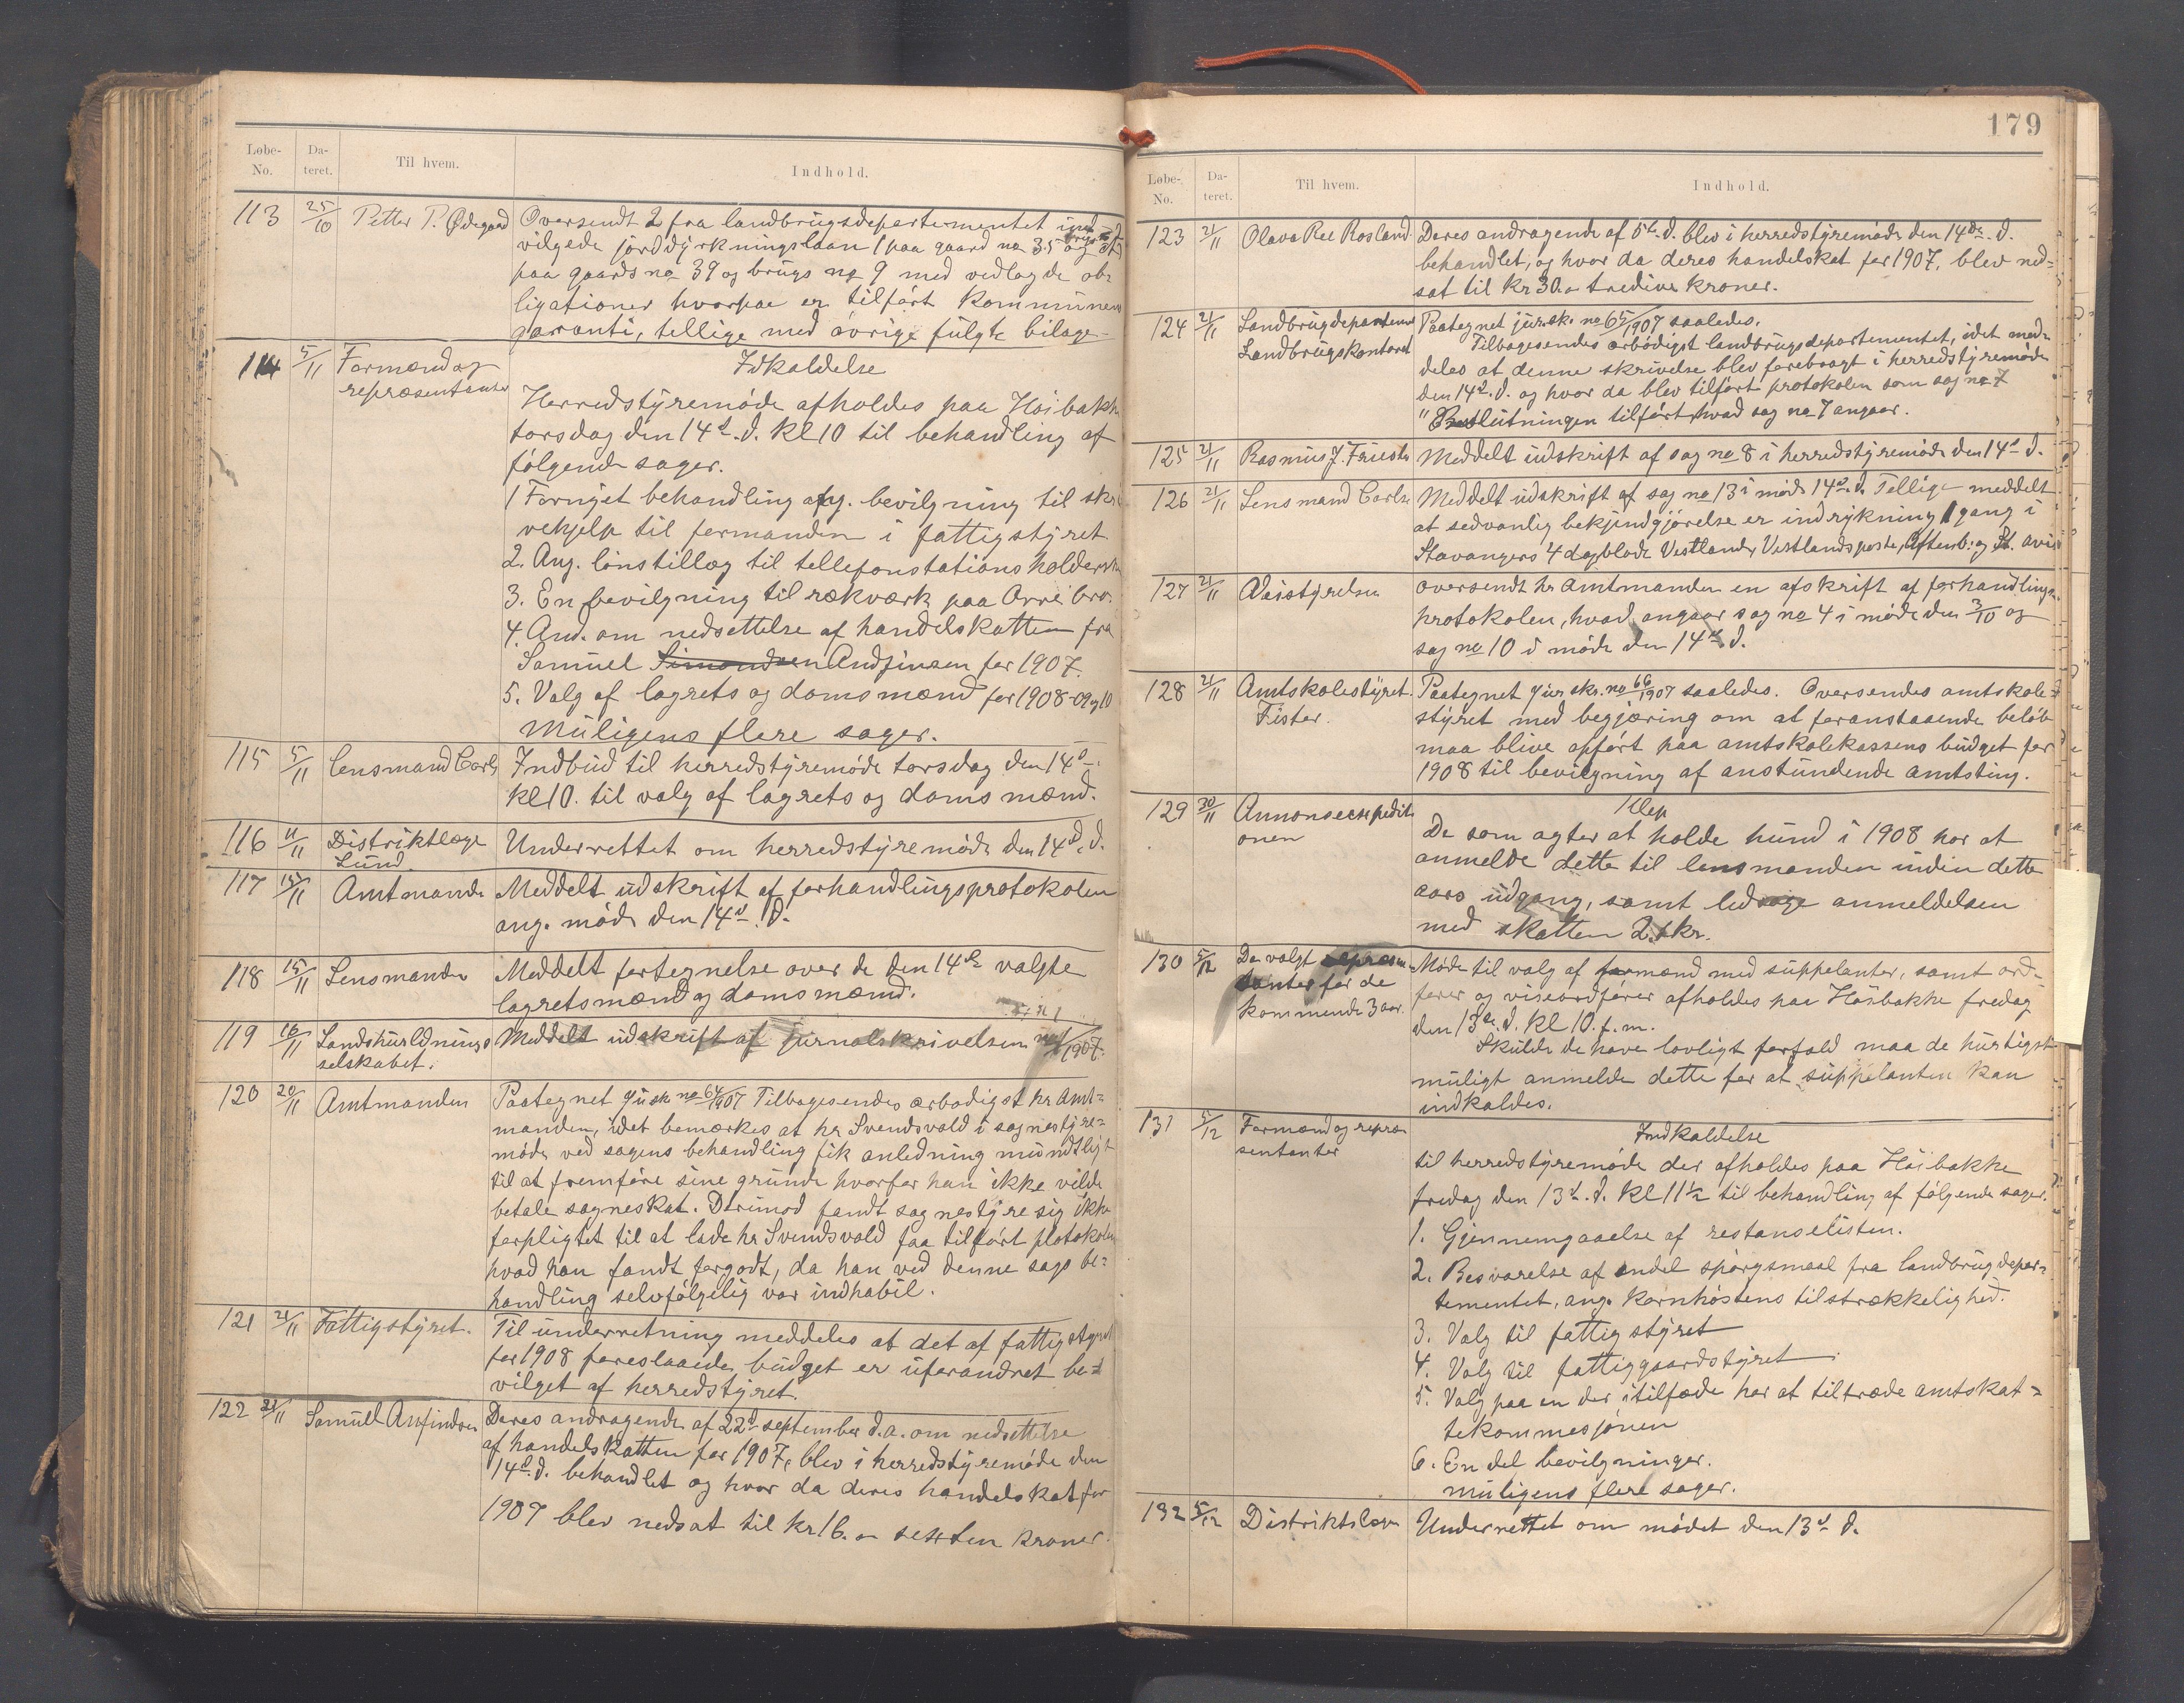 Løbe-No. Da-teret. Til hvem. Indhold.
113 25/10 Petter P. Ødegaard Oversendt 2 fra landbrugsdepartementet ind
vilgede jorddyrkningslaan 1 paa gaard no 35 brugs no
paa gaards no 39 og brugs no 9 med vedlagde ob-
ligationer hvorpaa er tilført kommunens
garanti, tellige med øvrige fulgte bilage
114 5/11 Formænd og
repræsentanter
Idkaldelse
Herredstyremøde afholdes paa Høibakke
torsdag den 14d. d. Kl 10 til behandling af
følgende sager.
1 Fornyet behandling ang. bevilgning til skri
vehjelp til formanden i fattigstyret
2. Ang. lønstillæg til tellefonstationsholderen
3. En bevilgning til rækværk paa Orre bro.
4. And. om nedsettelse af handelskatten fra
Samuel Simondsen Andfinsen for 1907.
5. Valg af lagrets og domsmænd for 1908-09 og 10
Muligens flere sager.
115 5/11 Lensmand Carls Indbud til herredstyremøde torsdag den 14d.
Kl 10. til valg af lagrets og doms mænd.
116 11/11 Distriktlæge
Lund
Underrettet om herredstyremøde den 14d. d.
117 15/11 Amtmande Meddelt udskrift af forhandlingsprotokolen
ang. møde den 14d. d.
118 15/11 Lensmanden Meddelt fortegnelse over de den 14de valgte
lagretsmænd og domsmænd.
119 16/11 Landshuldnings
selskabet.
Meddelt udskrift af jurnalskrivelsen no /1907.
120 20/11 Amtmanden Paategnet jusk no 64/1907 Tilbagesendes ærbødigst hr Amt=
manden, idet bemærkes at hr Svendsvold i sognestyre=
møde ved sagens behandling fik anledning mundtligt
til at fremføre sine grunde hvorfor han ikke vilde
betale sogneskat. Derimod fandt sognestyre sig ikke
forpligtet til at lade hr Svendsvold faa tilført plotokolen
hvad han fandt forgodt, da han ved denne sags be=
handling selvfølgelig var indhabil.
121 21/11 Fattigstyret. Til underretning meddeles at det af fattigstyret
for 1908 foreslaaede budget er uforandret be=
vilget af herredstyret.
122 21/11 Samuel Anfindsen Deres andragende af 22d september d.a. om nedsettelse
af handelskatten for 1907, blev i herredstyremøde den
14d. d. behandlet og hvor da deres handelskat for
1907 blev nedsat til kr 16. = sexsten kroner.
179
Løbe-No. Da-teret. Til hvem. Indhold.
123 21/11 Olava Ree Rosland Deres andragende af 5te d. blev i herredstyremøde den 14de d.
behandlet, og hvor da deres handelskat for 1907, blev ned=
sat til kr 30. = tredive kroner.
124 21/11 Landbrugdepartement
Landbrugskontoret
Paategnet jursk. no 65/1907 saaledes.
Tilbagesendes ærbødigst landbrugsdepartementet, idet med=
deles at denne skrivelse blev forebragt i herredstyremøde
den 14d. d. og hvor da blev tilført protokolen som sag no 7
" Beslutningen tilført hvad sag no 7 angaar.
125 21/11 Rasmus J. Friestad Meddelt udskrift af sag no 8 i herredstyremøde den 14d d.
126 21/11 Lensmand Carlse Meddelt udskrift af sag no 13 i møde 14d. d. Tellige meddelt
at sedvanlig bekjendgjørelse er indrykning 1 gang i
Stavangers 4 dagblade Vestlande, Vestlandsposte, Aftenb: og St. avis
127 21/11 Veistyrelsen oversendt hr Amtmanden en afskrift af forhandlings
protokolen, hvad angaar sag no 4 i møde den 3/10 og
sag no 10 i møde den 14d d.
128 21/11 Amtskolestyret.
Fister.
Paategnet jur. skr. no 66/1907 saaledes. Oversendes amtskole=
styret med begjæring om at foranstaaende beløb
maa blive opført paa amtskolekassens budget for
1908 til bevilgning af anstundende amtsting.
129 30/11 Annonseexpedit
onen
Klep
De som agter at holde hund i 1908 har at
anmelde dette til lensmanden inden dette
aars udgang, samt ledsage anmeldelsen
med skatten 2 kr.
130 5/12 De valgt repræsen
tanter for de
kommende 3 aar.
Møde til valg af formænd med suppelanter, samt ord=
fører og viseordfører afholdes paa Høibakke fredag
den 13de. d. Kl 10. f. m.
Skulde de have lovligt forfald maa de hurtigst
muligt anmelde dette for at suppelanten kan
indkaldes.
131 5/12 Formænd og repræ
sentanter
Indkaldelse
til herredstyremøde der afholdes paa Høibakke
fredag den 13d. d. Kl 11½ til behandling af følgende sager.
1. Gjennemgaaelse af restanselisten.
2. Besvarelse af endel spørgsmaal fra landbrugdepar=
tementet, ang. kornhøstens tilstrækkelighed.
3. Valg til fattigstyret
4. Valg til fattiggaardstyret
5. Valg paa en der itilfæde har at tiltræde amtskat=
tekommesjonen
6. En del bevilgninger.
muligens flere sager.
132 5/12 Distriktslægen Underrettet om mødet den 13d d.